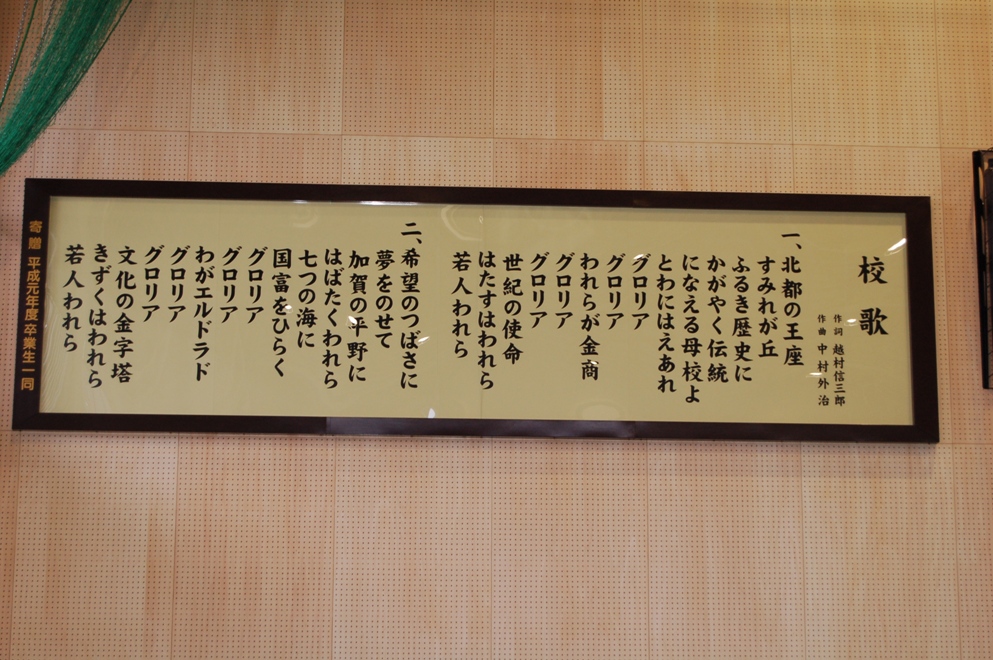 校歌
作詞 越村信三郎
作曲 中村外治
一、北都の王座
すみれが丘
ふるき歴史に
かがやく伝統
になえる母校よ
とわにはえあれ
グロリア
グロリア
われらが金商
グロリア
グロリア
世紀の使命
はたすはわれら
若人われら
二、希望のつばさに
夢をのせて
加賀の平野に
はばたくわれら
七つの海に
国富をひらく
グロリア
グロリア
わがエルドラド
グロリア
グロリア
文化の金字塔
きずくはわれら
若人われら
寄贈 平成元年度卒業生一同